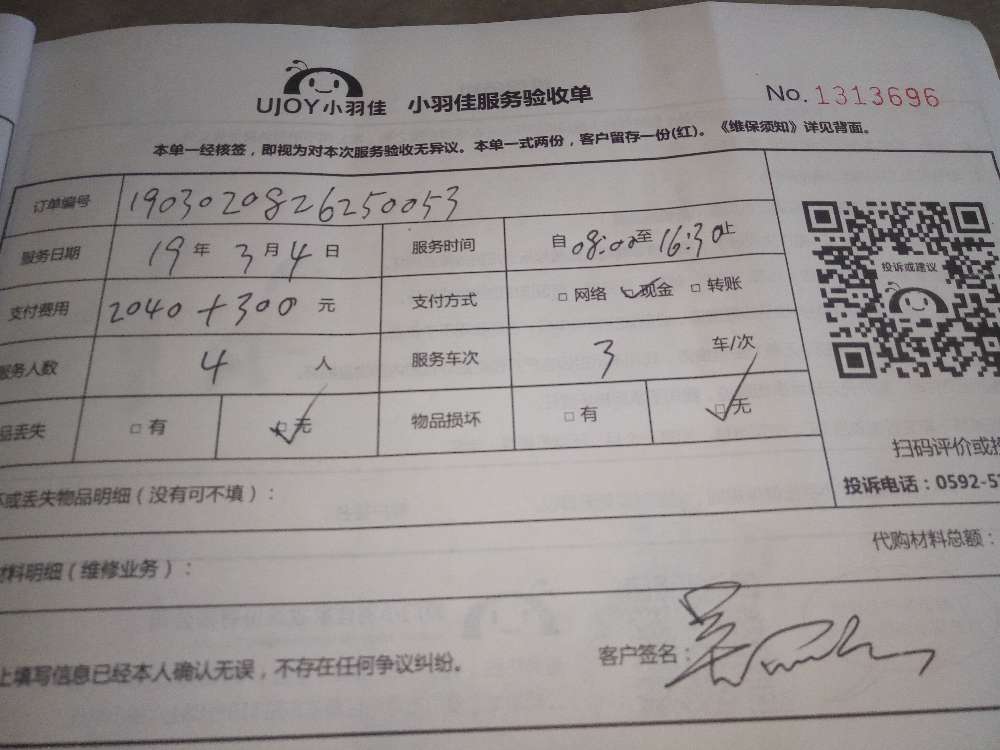 UJOY小羽佳 小羽佳服务验收单 No.1313696
本单一经核签，即视为对本次服务验收无异议。本单一式两份，客户留存一份(红)。《维保须知》详见背面。
订单编号 1903020826250053
服务日期 19年3月4日 服务时间 自08:00至16:30止
支付费用 2040+300元 支付方式 □网络 □现金 □转账
服务人数 4人 服务车次 3车/次
品丢失 □有 □无 物品损坏 □有 □无
投诉或建议
扫码评价或投
投诉电话：0592-5
坏或丢失物品明细（没有可不填）：
代购材料总额：
材料明细（维修业务）：
上填写信息已经本人确认无误，不存在任何争议纠纷。
客户签名：